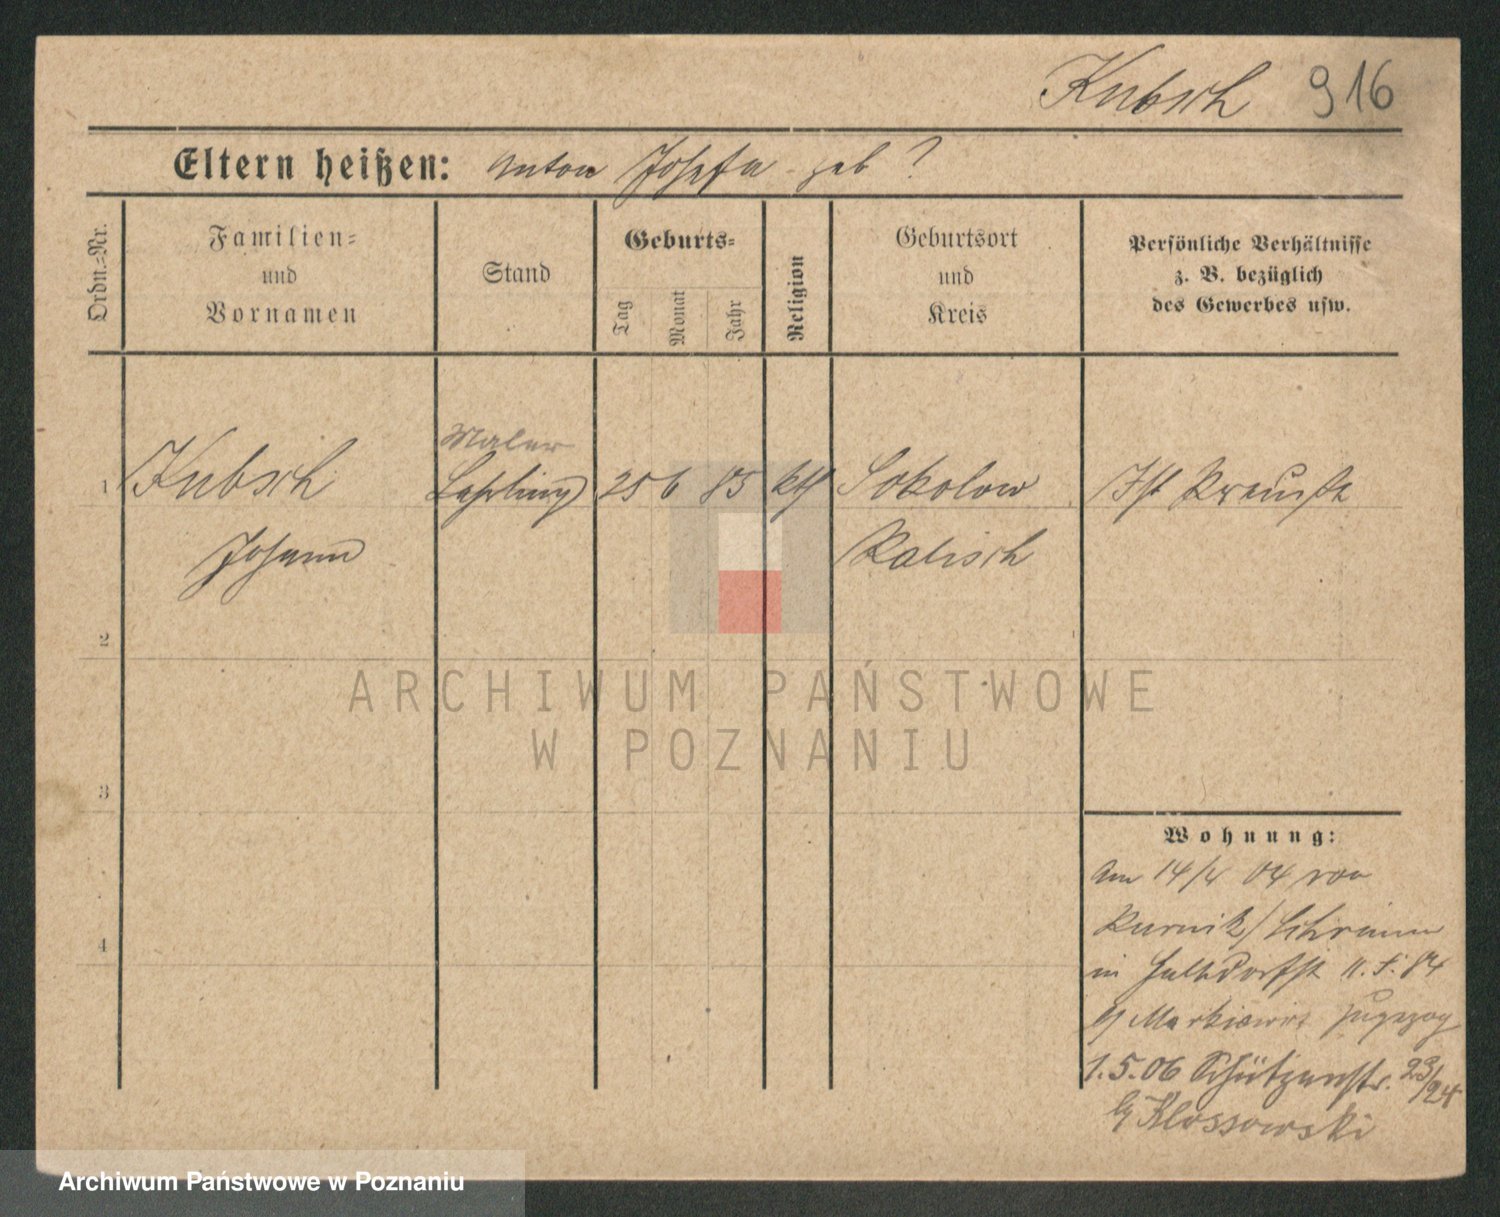 Kubsch 916
Eltern heißen: Anton Josefa geb ?
Ordn.-Nr.
Familien- und Vornamen
Stand
Geburts-
Tag
Monat
Jahr
Religion
Geburtsort und Kreis
Persönliche Verhältnisse z. B. bezüglich des Gewerbes usw.
Maler
1 Kubsch Lehrling 25 6 85 kth Sokolow Ist Preuße
Johann Kalisch
2
3
4
Wohnung:
Am 14/4 04 von
Kurnik/Schrimm
in
Markiewicz zugezog
1.5.06 Schützenstr. 23/24
b/ Klossowski
ARCHIWUM PAŃSTWOWE
W POZNANIU
Archiwum Państwowe w Poznaniu